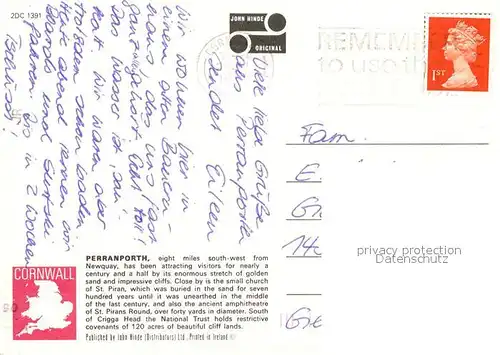 2DC 1391
JOHN HINDE
ORIGINAL
REMEMBER
to use the
1ST
Viele liebe Grüße
aus Perranporth
sendet Eileen
Wir wohnen hier in
einem alten Bauern-
haus, das uns fast
ganz gehört. Echt toll!
Das Wasser ist, sau-
kalt. Wir waren aber
trotzdem schon baden
Heute abend lernen wir
Darts und
fahren. Bis in 2 Wochen
Tschüss!
Fam.
E
G
14
Ge
privacy protection
Datenschutz
CORNWALL
PERRANPORTH, eight miles south-west from
Newquay, has been attracting visitors for nearly a
century and a half by its enormous stretch of golden
sand and impressive cliffs. Close by is the small church
of St. Piran, which was buried in the sand for seven
hundred years until it was unearthed in the middle
of the last century, and also the ancient amphitheatre
of St. Pirans Round, over forty yards in diameter. South
of Crigga Head the National Trust holds restrictive
covenants of 120 acres of beautiful cliff lands.
Published by John Hinde (Distributors) Ltd., Printed in Ireland ©